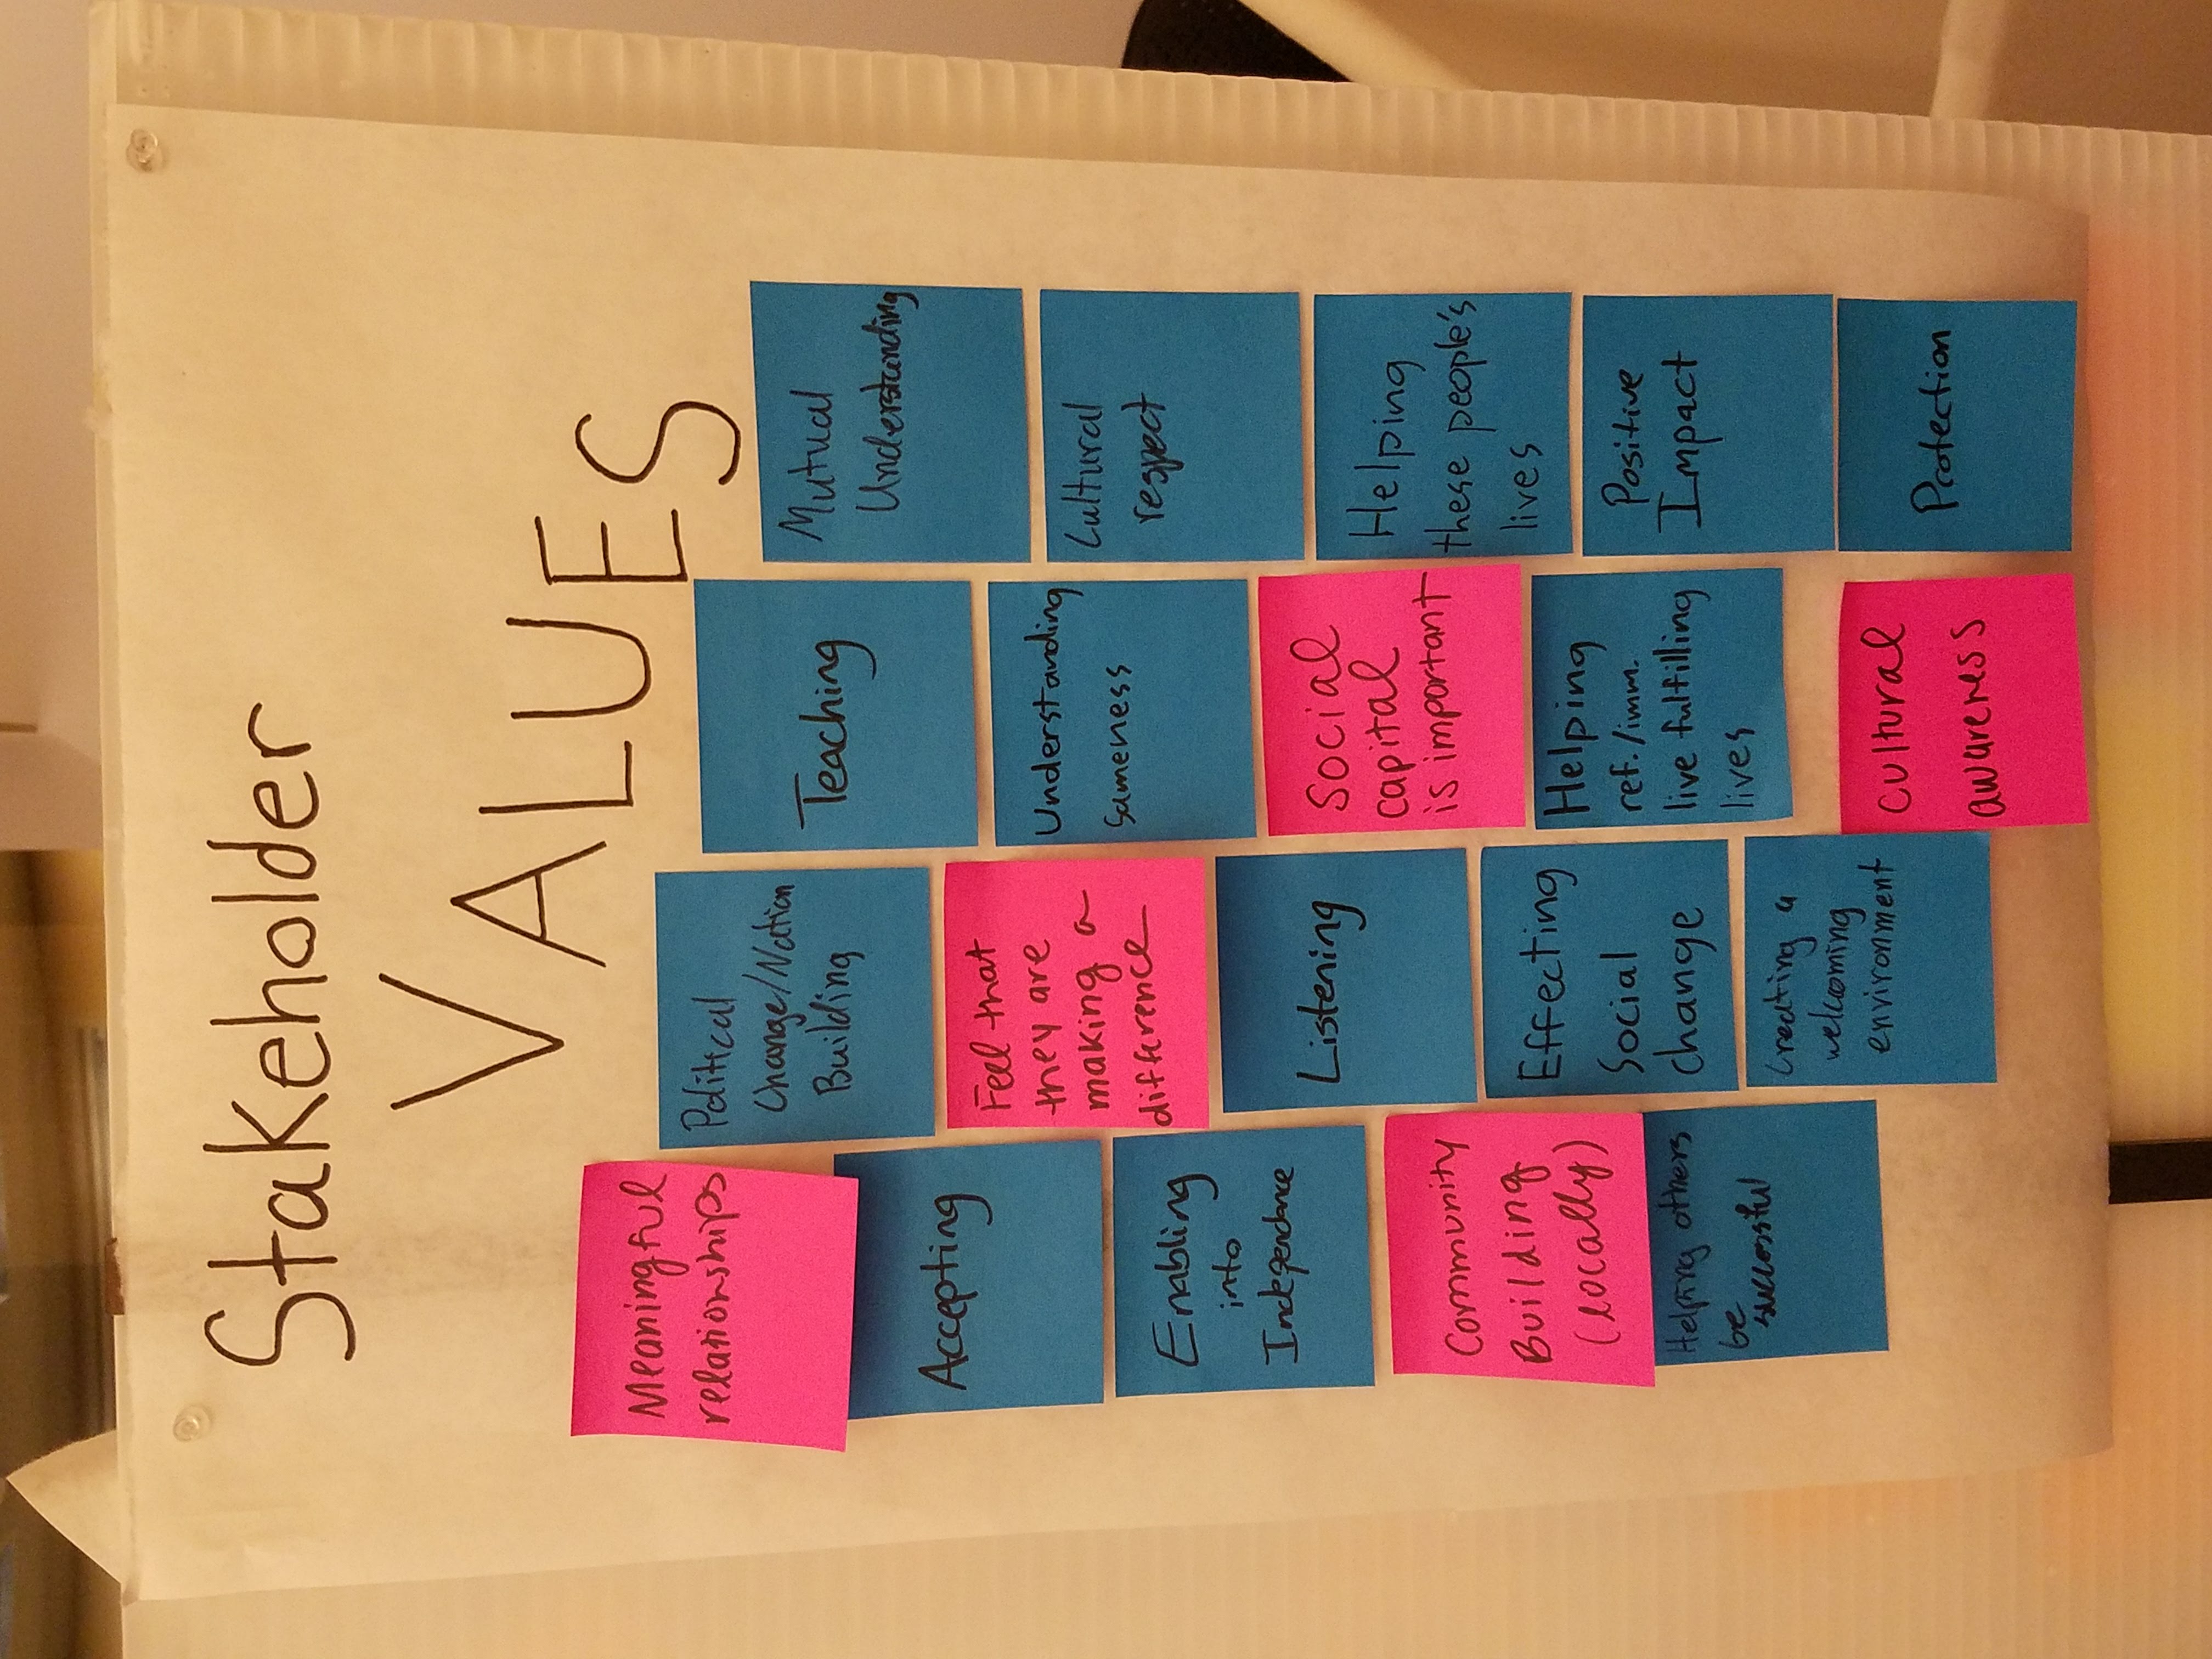 Stakeholder
VALUES
Meaningful
relationships
Accepting
Enabling
into
Independance
Community
Building
(locally)
Helping others
be
successful
Political
Change/Nation
Building
Feel that
they are
making a
difference
Listening
Effecting
Social
change
Creating a
welcoming
environment
Teaching
Understanding
Sameness
Social
capital
is important
Helping
ref./imm.
live fulfilling
lives
cultural
awareness
Mutual
Understanding
Cultural
respect
Helping
these people's
lives
Positive
Impact
Protection